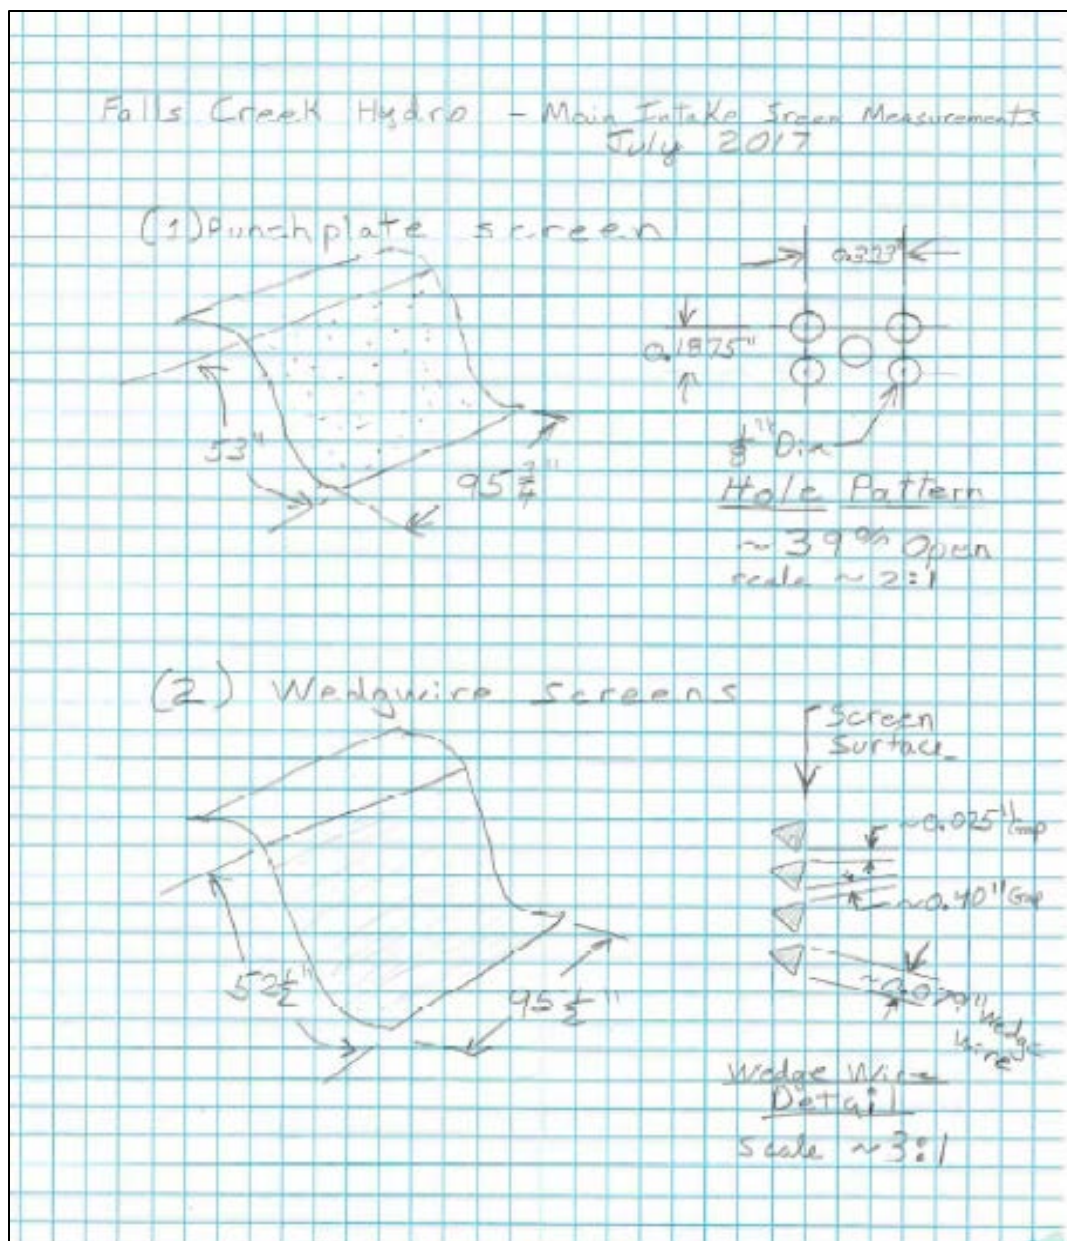 Falls Creek Hydro - Main Intake Sreen Measurements
July 2017
(1) Punchplate screen
0.1875"
1/8" Dia
Hole Pattern
~ 39% Open
scale ~ 2:1
53"
95 3/4"
(2) Wedgwire screens
Screen
Surface
~0.025" Gap
~0.40" Gap
Wedge
Wire
52 1/2"
95 1/2"
Wedge Wire
Detail
scale ~3:1